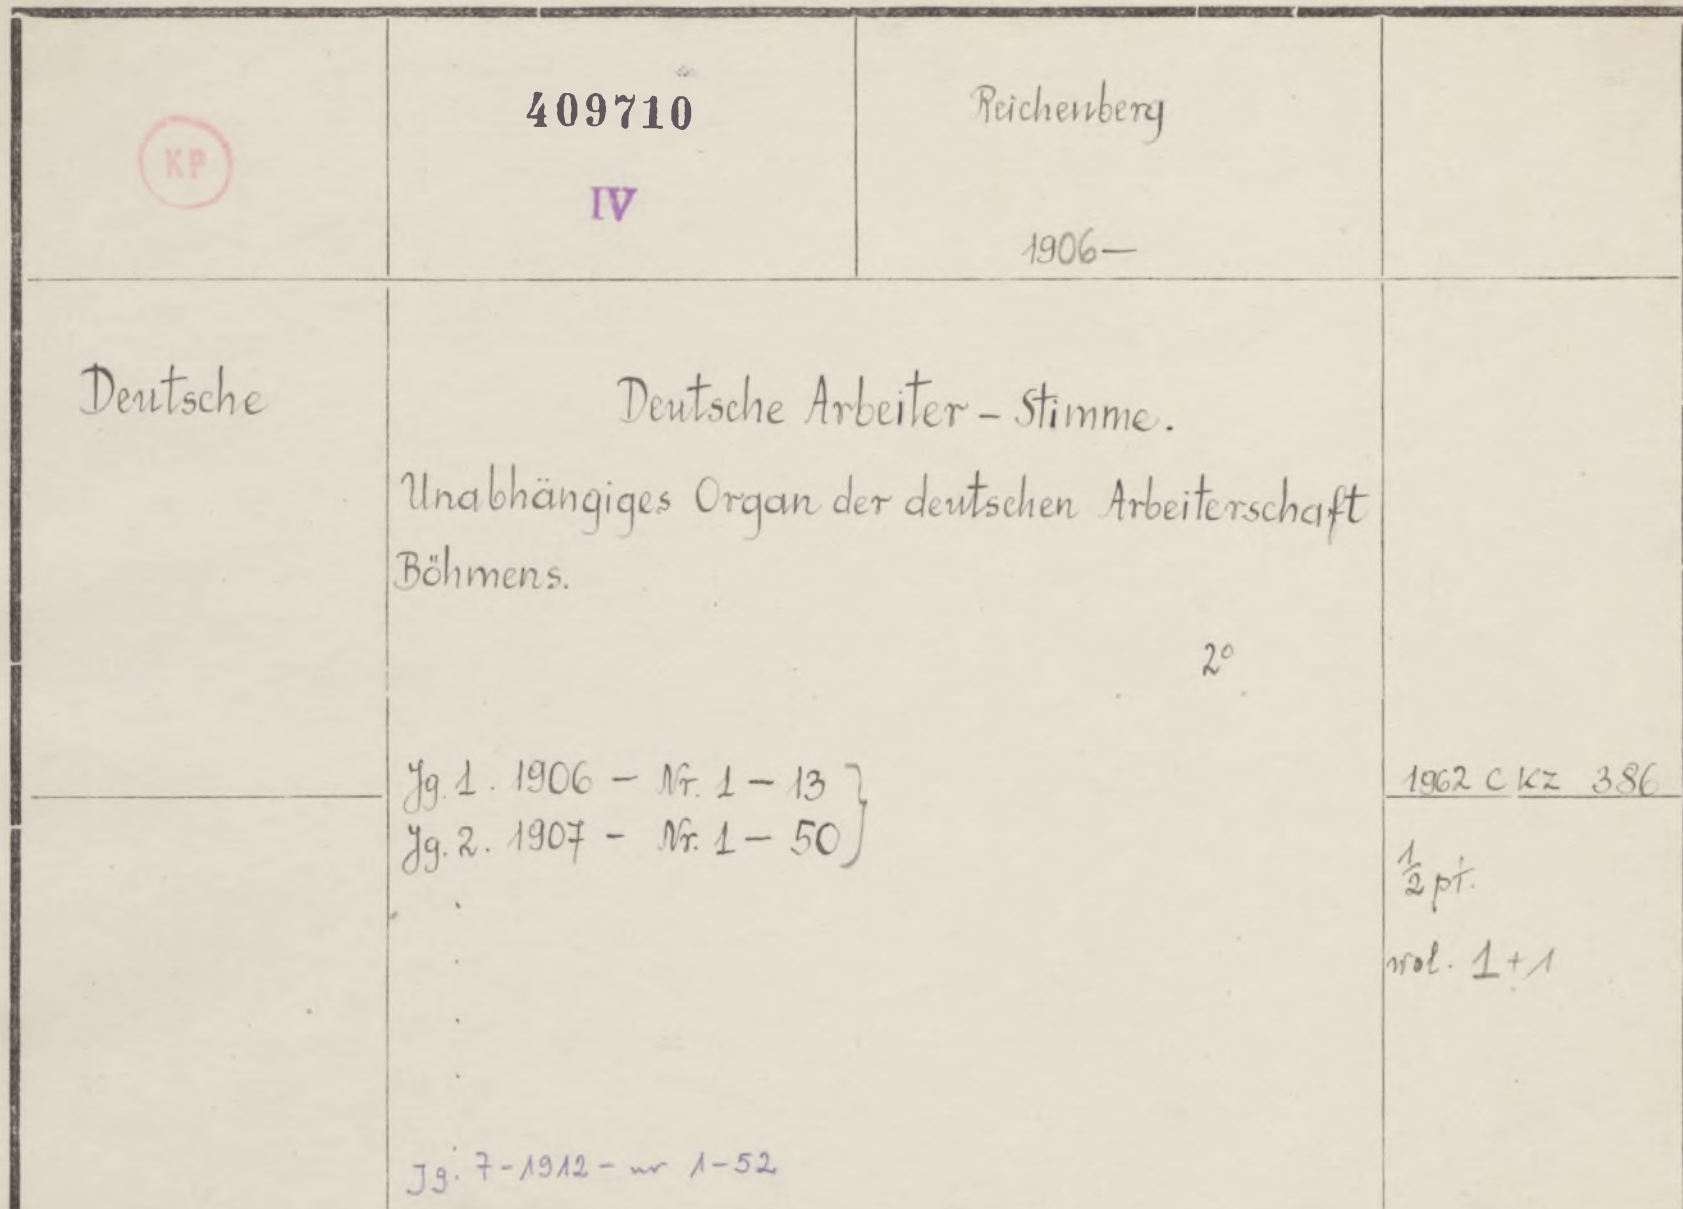 KP
409710
IV
Reichenberg
1906—
Deutsche
Deutsche Arbeiter – Stimme.
Unabhängiges Organ der deutschen Arbeiterschaft
Böhmens.
2°
Jg. 1. 1906 – Nr. 1 – 13
Jg. 2. 1907 – Nr. 1 – 50
Jg. 7 - 1912 - nr 1-52
1962 C KZ 386
1/2 pł.
wol. 1 + 1